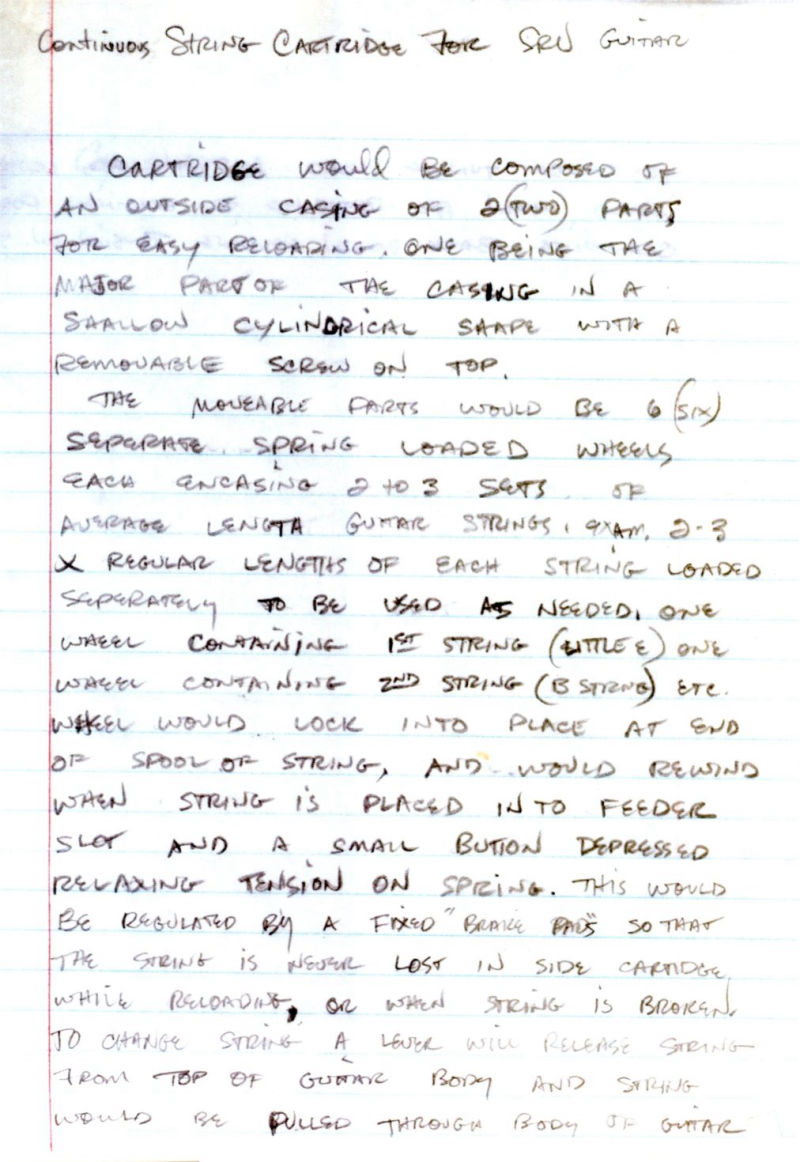 Continuous String Cartridge For SRV Guitar
CARTRIDGE would BE COMPOSED OF
AN OUTSIDE CASING OF 2 (TWO) PARTS
FOR EASY RELOADING. ONE BEING THE
MAJOR PART OF THE CASING IN A
SHALLOW CYLINDRICAL SHAPE WITH A
REMOVABLE SCREW ON TOP.
THE MOVEABLE PARTS WOULD BE 6 (SIX)
SEPERATE SPRING LOADED WHEELS
EACH ENCASING 2 TO 3 SETS OF
AVERAGE LENGTH GUITAR STRINGS. EXAM. 2-3
X REGULAR LENGTHS OF EACH STRING LOADED
SEPERATELY TO BE USED AS NEEDED. ONE
WHEEL CONTAINING 1ST STRING (LITTLE E) ONE
WHEEL CONTAINING 2ND STRING (B STRING) ETC.
WHEEL WOULD LOCK INTO PLACE AT END
OF SPOOL OF STRING, AND WOULD REWIND
WHEN STRING IS PLACED INTO FEEDER
SLOT AND A SMALL BUTTON DEPRESSED
RELAXING TENSION ON SPRING. THIS WOULD
BE REGULATED BY A FIXED "BRAKE PADS" SO THAT
THE STRING IS NEVER LOST IN SIDE CARTIDGE
WHILE RELOADING, OR WHEN STRING IS BROKEN.
TO CHANGE STRING A LEVER WILL RELEASE STRING
FROM TOP OF GUITAR BODY AND STRING
WOULD BE PULLED THROUGH BODY OF GUITAR